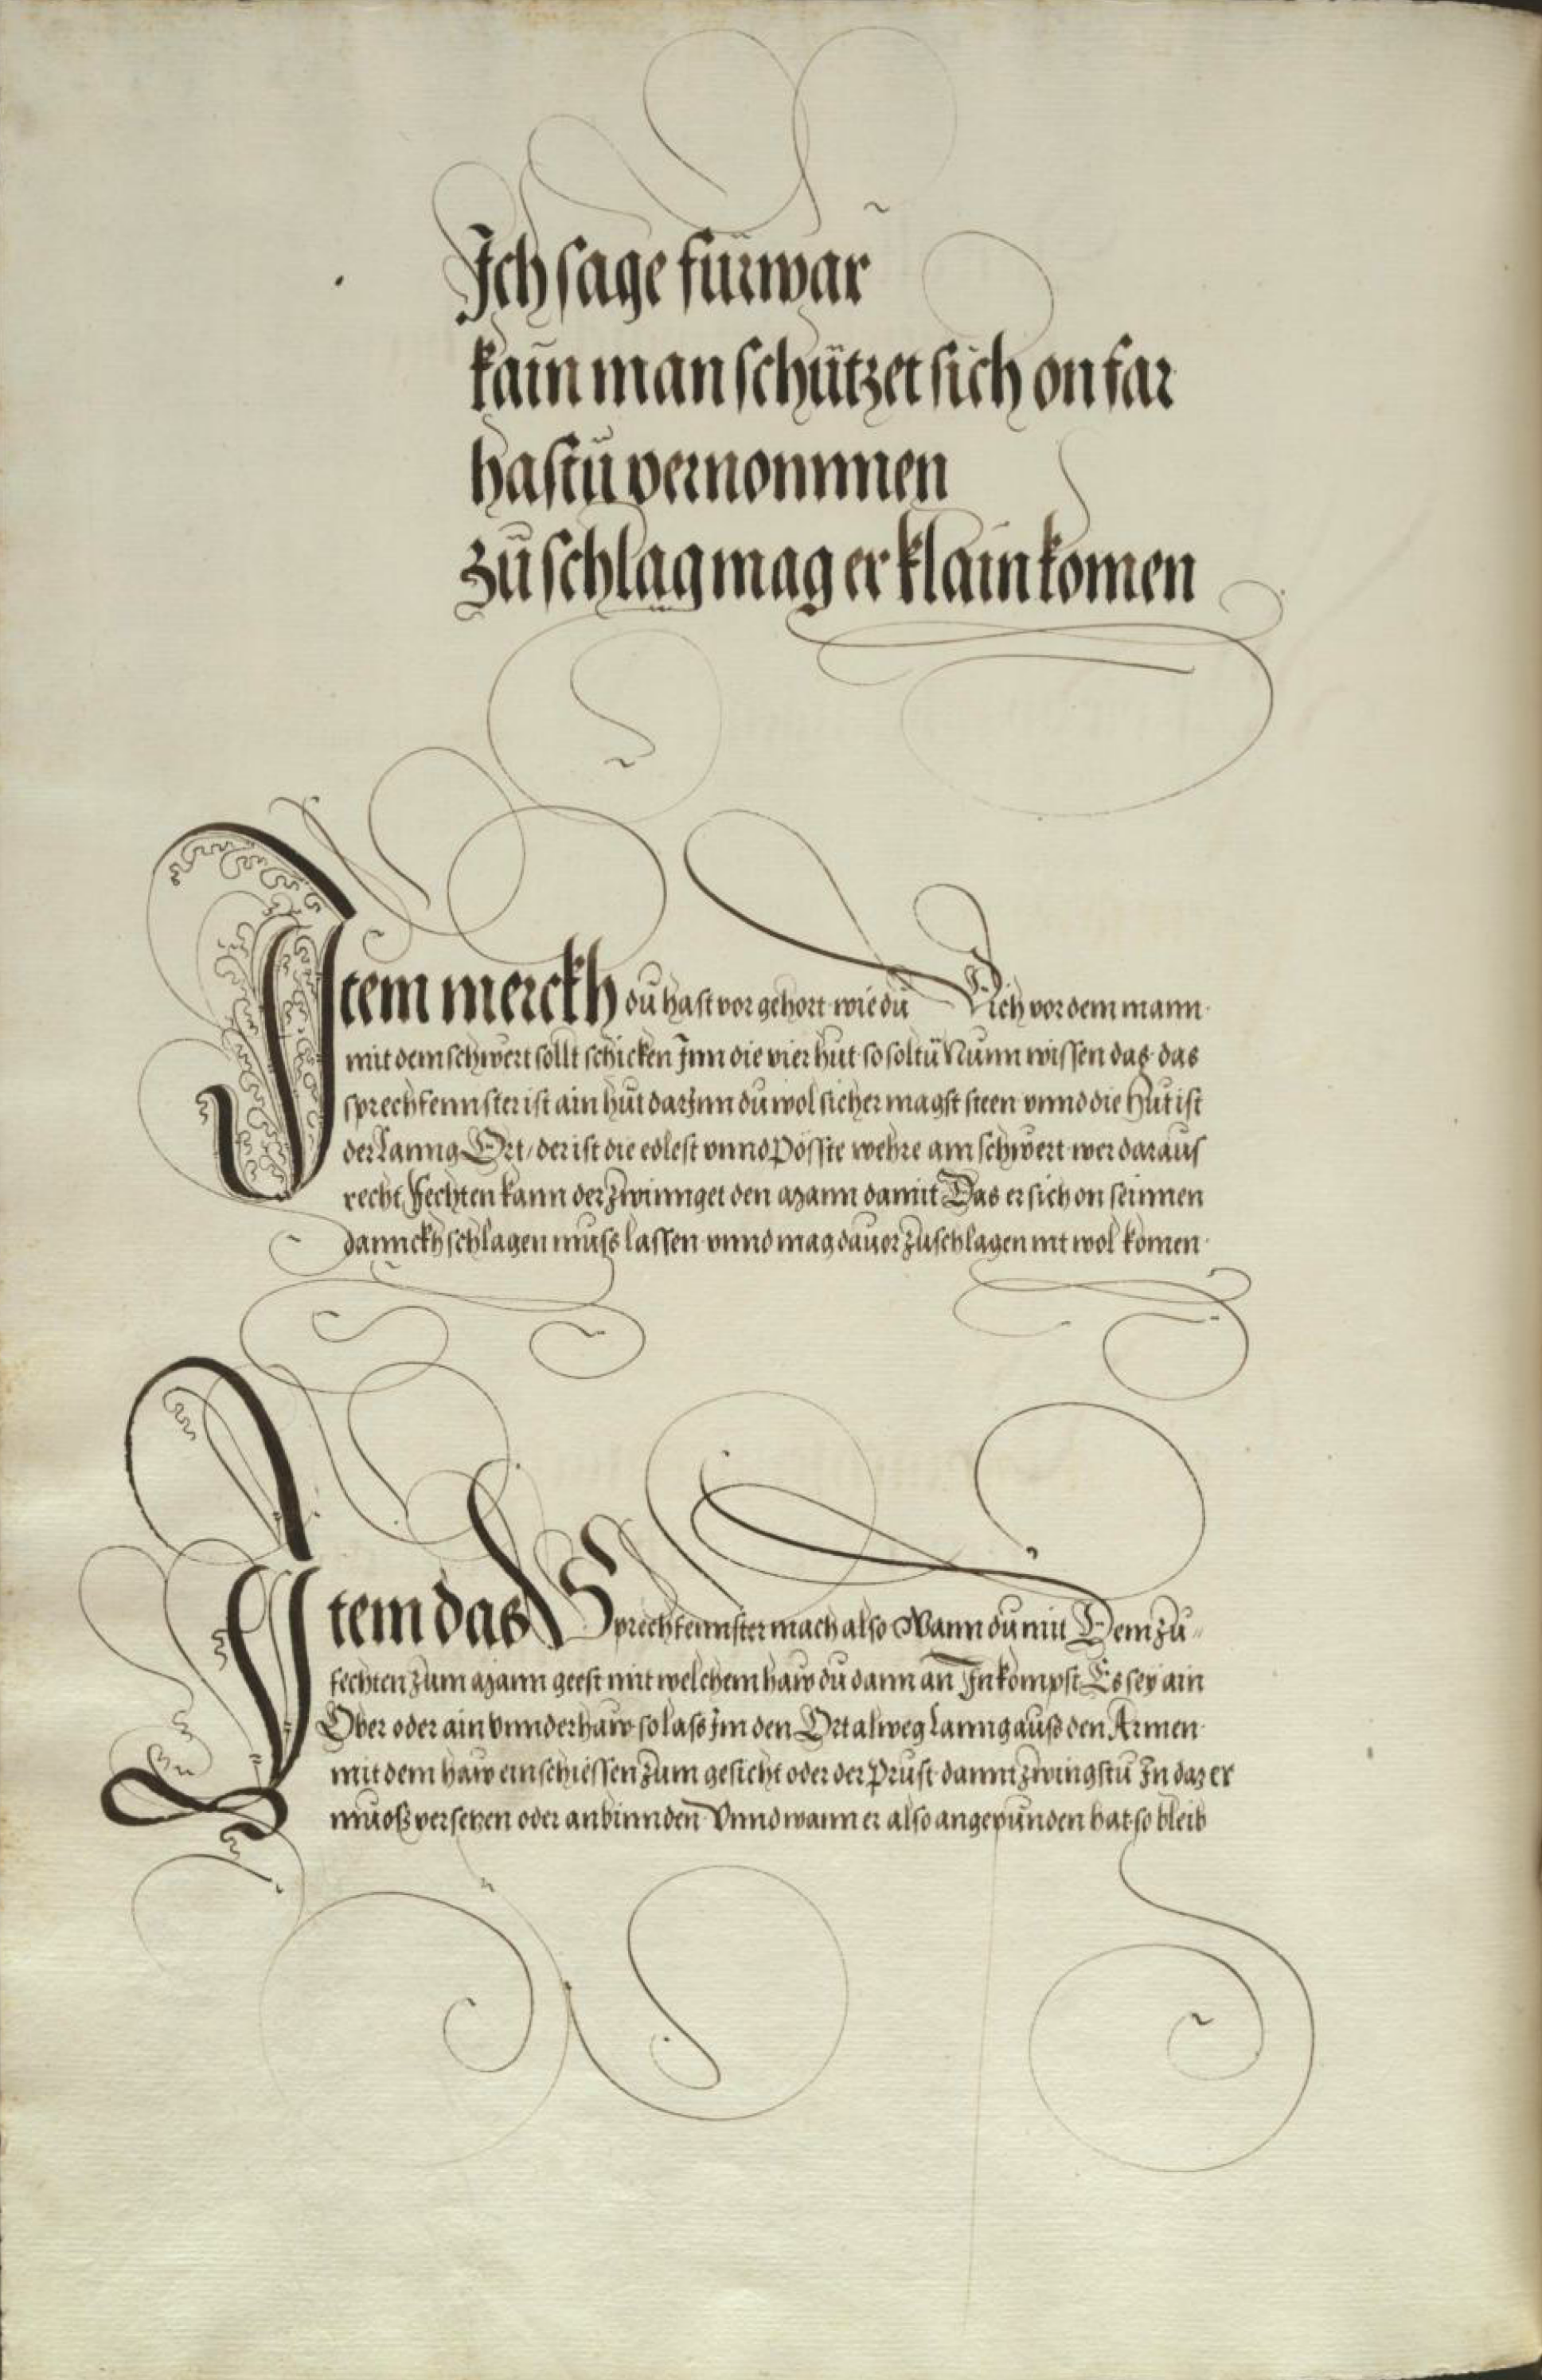 Ich sage fürwar
kain man schützet sich on far
hastu vernommen
zu schlag mag er klain komen
Item merckh du hast vor gehort wie du Dich vor dem mann
mit dem schwert sollt schicken Inn die vier hut so soltu Nunn wissen das das
sprechfennster ist ain hut darInn du wol sicher magst steen vnnd die Hut ist
der Lanng Ort / der ist die edlest vnnd Pösste wehre am schwert wer daraus
recht Fechten kann der zwinnget den Mann damit Das er sich on seinnen
dannckh schlagen muss lassen vnnd mag dauor zuschlagen nit wol komen
Item das Sprechfennster mach also Wann du mit Dem zu
fechten zum Mann geest mit welchem haw du dann an In kompst Es sey ain
Ober oder ain vnnderhaw so lass Im den Ort alweg lanng auss den Armen
mit dem haw einschiessen zum gesicht oder der Prust damit zwingstu In daz er
muoss versetzen oder anbinnden Vnnd wann er also angepunden hat so bleib